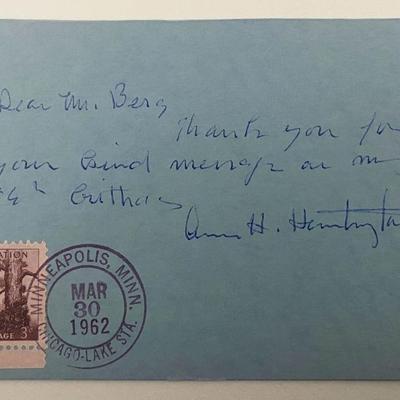 Dear Mr. Berg
Thank you for
your kind message on my
Birthday
Anna H. Huntington
ATION
AGE 3
MINNEAPOLIS, MINN.
MAR
30
1962
CHICAGO-LAKE STA.